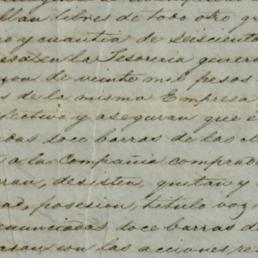 llan libres de todo otro gra
o y cuantia de seiscient
esa en la Tesoreria general
on de veinte mil pesos
s de la misma Empresa
fectivo y aseguran que e
das doce barras de las M
a la Compañia comprado
ran, desisten, quitan y
ad, posesion, titulo, voz
enunciadas doce barras d
asan con las acciones re